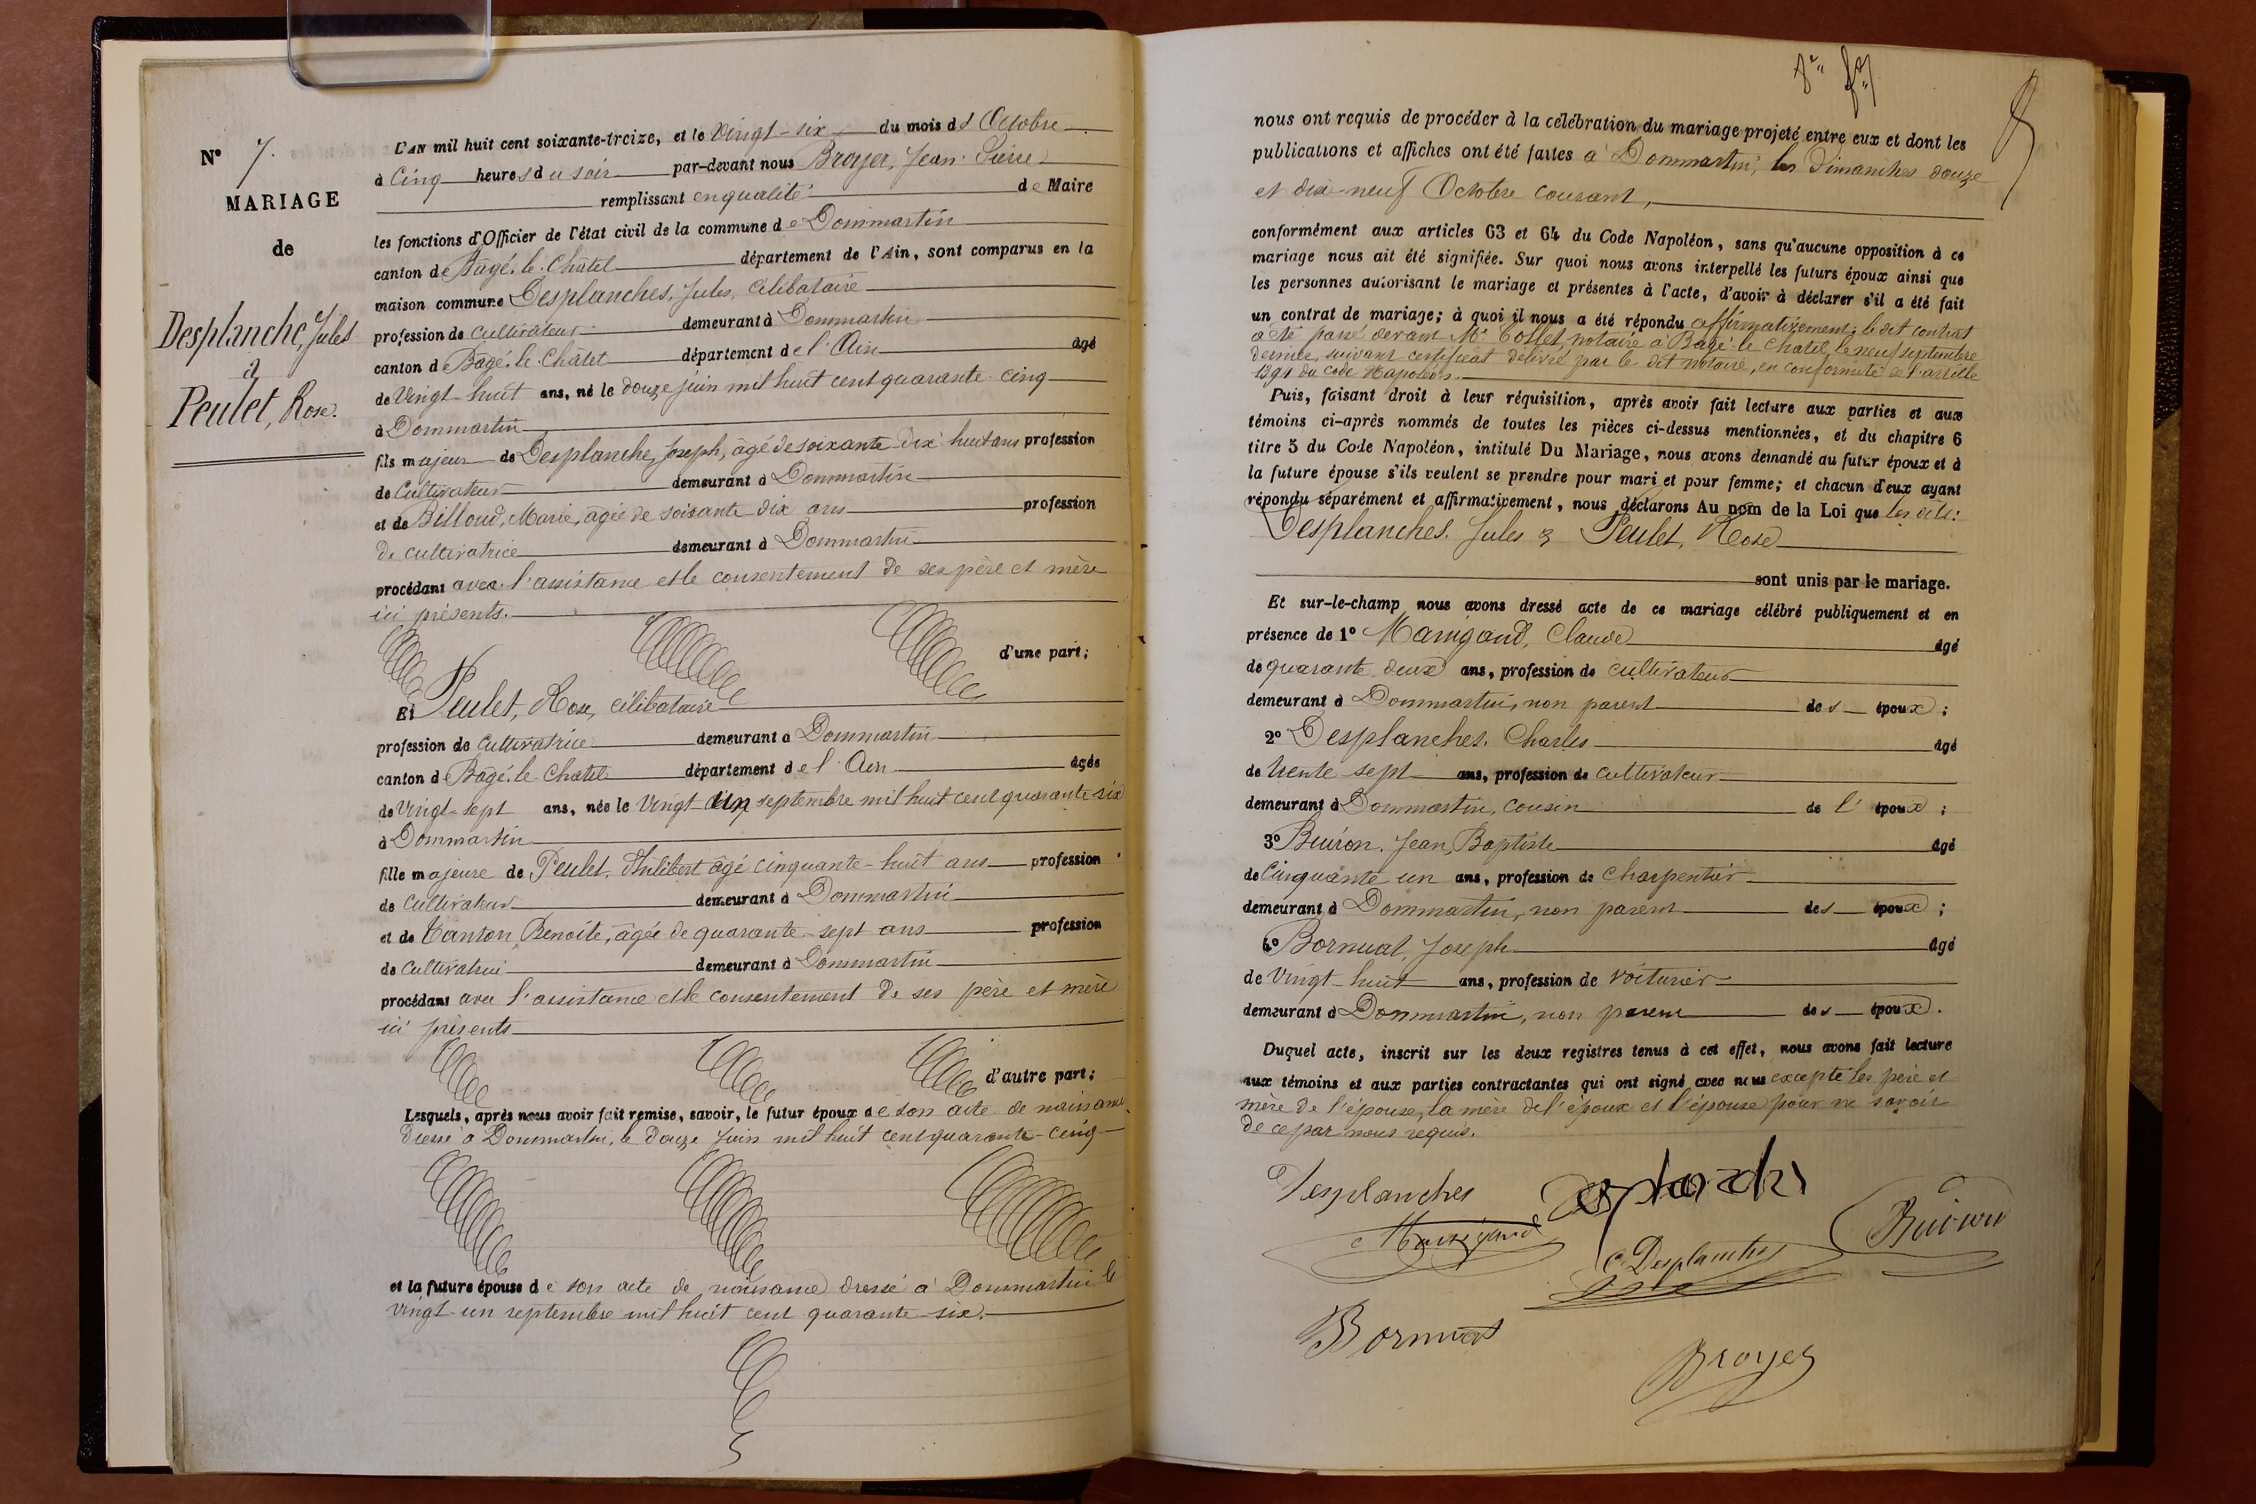 N° 7.
MARIAGE
de
Desplanche, Jules
à
Peulet, Rose.
L'AN mil huit cent soixante-treize, et le vingt-six du mois d'Octobre
à Cinq heures du soir par-devant nous Broyer, Jean Pierre
remplissant en qualité de Maire
les fonctions d'Officier de l'état civil de la commune de Dommartin
canton de Bâgé-le-Châtel département de l'Ain, sont comparus en la
maison commune Desplanches, Jules, célibataire
profession de cultivateur demeurant à Dommartin
canton de Bâgé-le-Châtel département de l'Ain âgé
de Vingt-huit ans, né le douze juin mil huit cent quarante-cinq
à Dommartin
fils majeur de Desplanche, Joseph, âgé de soixante dix huit ans profession
de Cultivateur demeurant à Dommartin
et de Billoud, Marie, âgée de soixante dix ans profession
de cultivatrice demeurant à Dommartin
procédant avec l'assistance et le consentement de ses père et mère
ici présents.
d'une part;
Et Peulet, Rose, célibataire
profession de Cultivatrice demeurant à Dommartin
canton de Bâgé-le-Chatel département de l'Ain âgée
de Vingt-sept ans, née le vingt un septembre mil huit cent quarante six
à Dommartin
fille majeure de Peulet, Philibert âgé cinquante-huit ans profession
de Cultivateur demeurant à Dommartin
et de Tanton, Benoite, âgée de quarante-sept ans profession
de Cultivatrice demeurant à Dommartin
procédant avec l'assistance et le consentement de ses père et mère
ici présents
d'autre part;
Lesquels, après nous avoir fait remise, savoir, le futur époux de son acte de naissance
dressé à Dommartin, le douze Juin mil huit cent quarante-cinq
et la future épouse de son acte de naissance dressé à Dommartin le
vingt-un septembre mil huit cent quarante-six.
nous ont requis de procéder à la célébration du mariage projeté entre eux et dont les
publications et affiches ont été faites à Dommartin, les Dimanches douze
et dix-neuf Octobre courant,
conformément aux articles 63 et 64 du Code Napoléon, sans qu'aucune opposition à ce
mariage nous ait été signifiée. Sur quoi nous avons interpellé les futurs époux ainsi que
les personnes autorisant le mariage et présentes à l'acte, d'avoir à déclarer s'il a été fait
un contrat de mariage; à quoi il nous a été répondu affirmativement; le dit contrat
a été passé devant Me Tollet, notaire à Bâgé-le-Chatel, le neuf septembre
dernier, suivant certificat délivré par le dit notaire, en conformité de l'article
1391 du Code Napoléon.
Puis, faisant droit à leur réquisition, après avoir fait lecture aux parties et aux
témoins ci-après nommés de toutes les pièces ci-dessus mentionnées, et du chapitre 6
titre 5 du Code Napoléon, intitulé Du Mariage, nous avons demandé au futur époux et à
la future épouse s'ils veulent se prendre pour mari et pour femme; et chacun d'eux ayant
répondu séparément et affirmativement, nous déclarons Au nom de la Loi que les dits:
Desplanches, Jules & Peulet, Rose
sont unis par le mariage.
Et sur-le-champ nous avons dressé acte de ce mariage célébré publiquement et en
présence de 1° Manigand, Claude âgé
de quarante deux ans, profession de cultivateur
demeurant à Dommartin, non parent des époux;
2° Desplanches, Charles âgé
de trente-sept ans, profession de cultivateur
demeurant à Dommartin, cousin de l'époux;
3° Buiron, Jean Baptiste âgé
de Cinquante un ans, profession de Charpentier
demeurant à Dommartin, non parent des époux;
4° Bornuat, Joseph âgé
de Vingt-huit ans, profession de voiturier
demeurant à Dommartin, non parent des époux.
Duquel acte, inscrit sur les deux registres tenus à cet effet, nous avons fait lecture
aux témoins et aux parties contractantes qui ont signé avec nous excepté les père et
mère de l'épouse, la mère de l'époux et l'épouse pour ne savoir
de ce par nous requis.
Desplanches
Manigand
C Desplanches
Buiron
Bornuat
Broyer